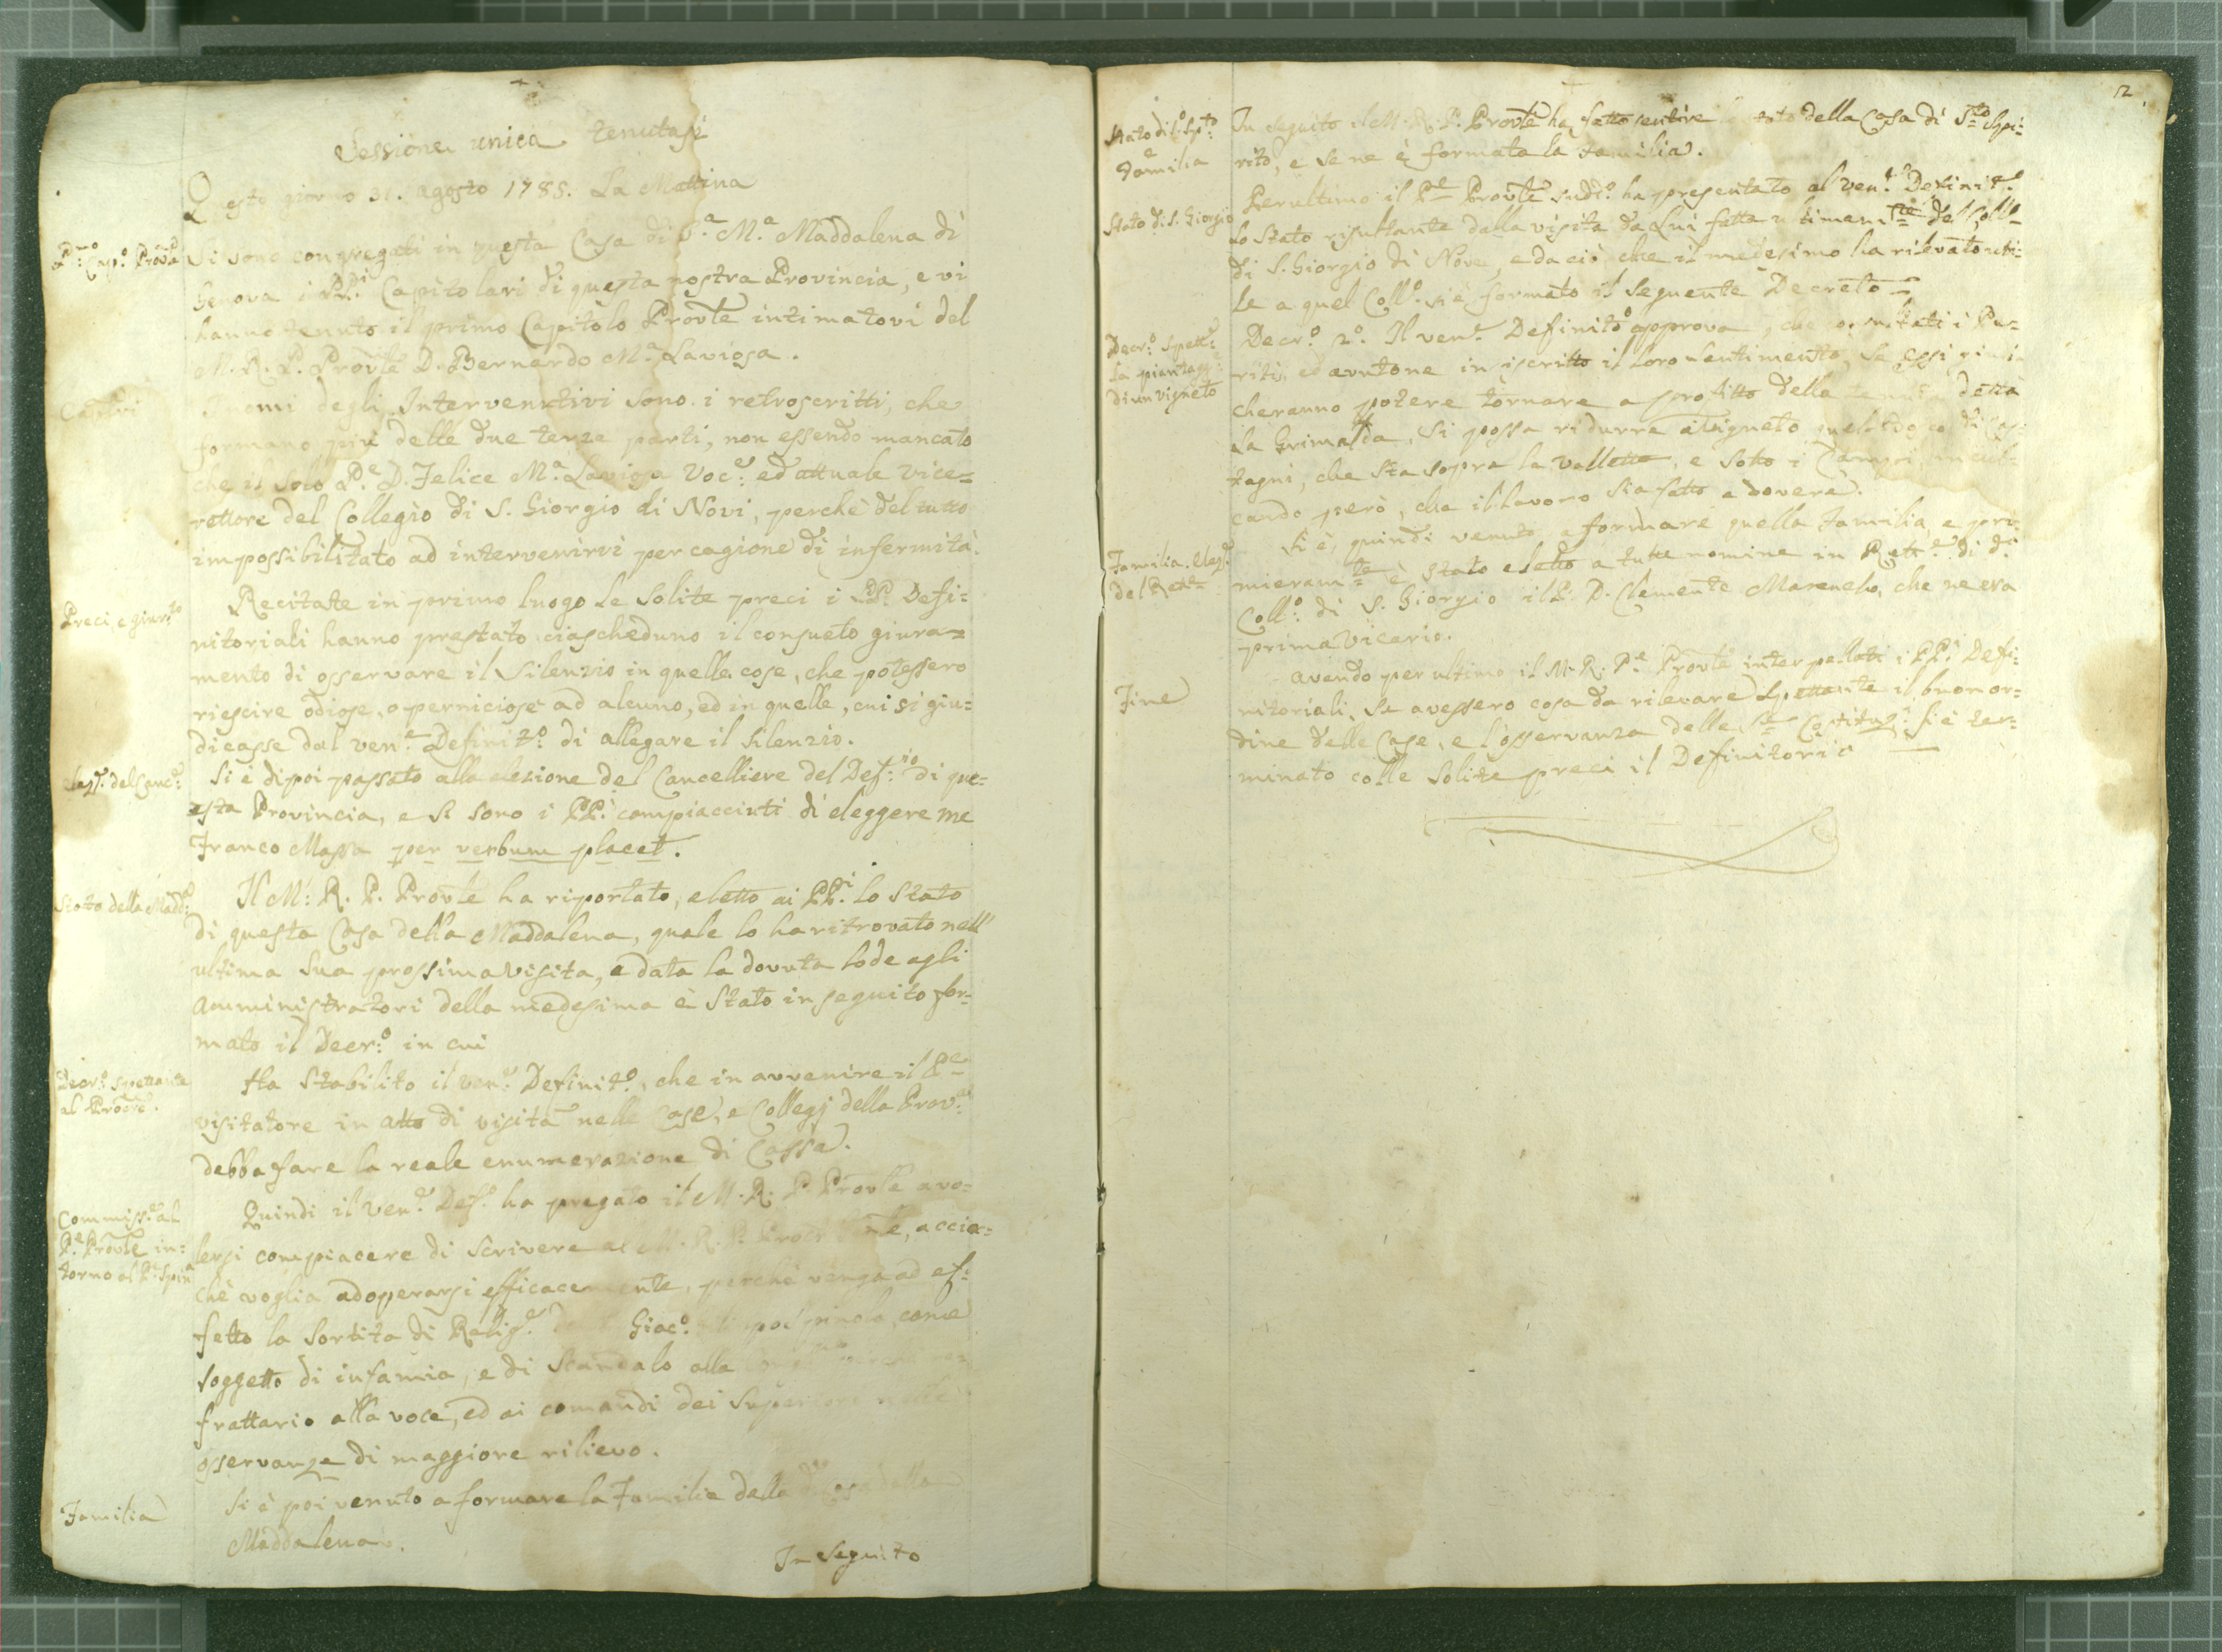 Sessione unica tenutasi
Questo giorno 31. agosto 1788. La Mattina
P.mo Cap.o Prov.le
Si sono congregati in questa Casa di S.a M.a Maddalena di
Genova i PP.i Capitolari di questa nostra Provincia, e vi
hanno tenuto il primo Capitolo Provle intimatovi del
M. R. P. Provle D. Bernardo M.a Laviosa.
I nomi degli Interventivi sono i retroscritti, che
formano più delle due terze parti, non essendo mancato
che il solo P.e D. Felice M.a Laviosa Voc.e ed attuale Vice=
rettore del Collegio di S. Giorgio di Novi, perchè del tutto
impossibilitato ad intervenirvi per cagione di infermità.
Preci, e giur.to
Recitate in primo luogo le solite preci i PP. Defi=
nitoriali hanno prestato ciascheduno il consueto giura=
mento di osservare il Silenzio in quelle cose, che potessero
riescire odiose, o perniciose ad alcuno, ed in quelle, cui si giu=
dicasse dal ven.e Definit.o di allegare il silenzio.
elez.e del Canc.e
Si è dipoi passato alla elezione del Cancelliere del Def.rio di que=
esta Provincia, e si sono i PP.i compiacciuti di eleggere me
Franco Massa per verbum placet.
Stato della Madd.a
Il M: R. P. Provle ha riportato, e letto ai PP.i lo Stato
di questa Casa della Maddalena, quale lo ha ritrovato nell'
ultima sua prossima visita, e data la dovuta lode agli
Amministratori della medesima è stato in seguito for=
mato il Decr:o in cui
Decr.o spettante
al
Ha Stabilito il ven.e Definit.o, che in avvenire il P.e
visitatore in atto di visita nelle Case, e Collegj della Prov.a
debba fare la reale enumerazione di Cassa.
Commiss.e al
P.e Provle in=
torno al P. Spin
Quindi il Ven.e Def.o ha pregato il M. R. P. Provle a vo=
lersi compiacere di scrivere al M. R. P. accio=
chè voglia adoperarsi efficacemente, perchè venga ad ef=
fetto la sortita di Relig.e Giac.o come
soggetto di infamia, e di scandalo alla
frattario alla voce, ed ai comandi dei Superiori nelle
osservanze di maggiore rilievo.
Familia
Si è poi venuto a formare la Familia della d.a Casa della
Maddalena.
In seguito
2
Stato di S.to Sp.to
e
Familia
In seguito il M. R. P. Provle ha fatto sentire lo stato della Casa di S.to Spi=
rito, e se ne è formata la Familia.
Stato di S. Giorgio
Per ultimo il P.e Provle sud.o ha presentato al ven.e Definit.o
lo Stato risultante dalla visita da Lui fatta ultimam.te del Coll.o
di S. Giorgio di Nove, e da ciò che il medesimo ha rilevato uti=
le a quel Coll.o si è formato il seguente Decreto =
Decr.o spett.e
la piantagg.e
di un vigneto
Decr.o 2.o Il ven.e Definit.o approva, che consultati i Pe=
riti, ed avutone in iscritto il loro sentimento, se essi giudi
cheranno potere tornare a profitto della tenuta detta
la Grimalda, si possa ridurre a vigneto quel bosco di cas=
tagni, che sta sopra la valletta, e sotto i Campi,
cando però, che il lavoro sia fatto a dovere.
Familia. elez.e
del Rett.e
Si è quindi venuto a formare quella Familia, e pri=
mieram.te è stato eletto a tutte nomine in Rett.e di d.o
Coll.o di S. Giorgio il P. D. Clemente che ne era
prima Vicario.
Fine
Avendo per ultimo il M. R. P.e Provle interpellati i PP.i Defi=
nitoriali, se avessero cosa da rilevare spettante il buon or=
dine delle Case, e l'osservanza delle S.te Costituz.i si è ter=
minato colle solite preci il Definitorio